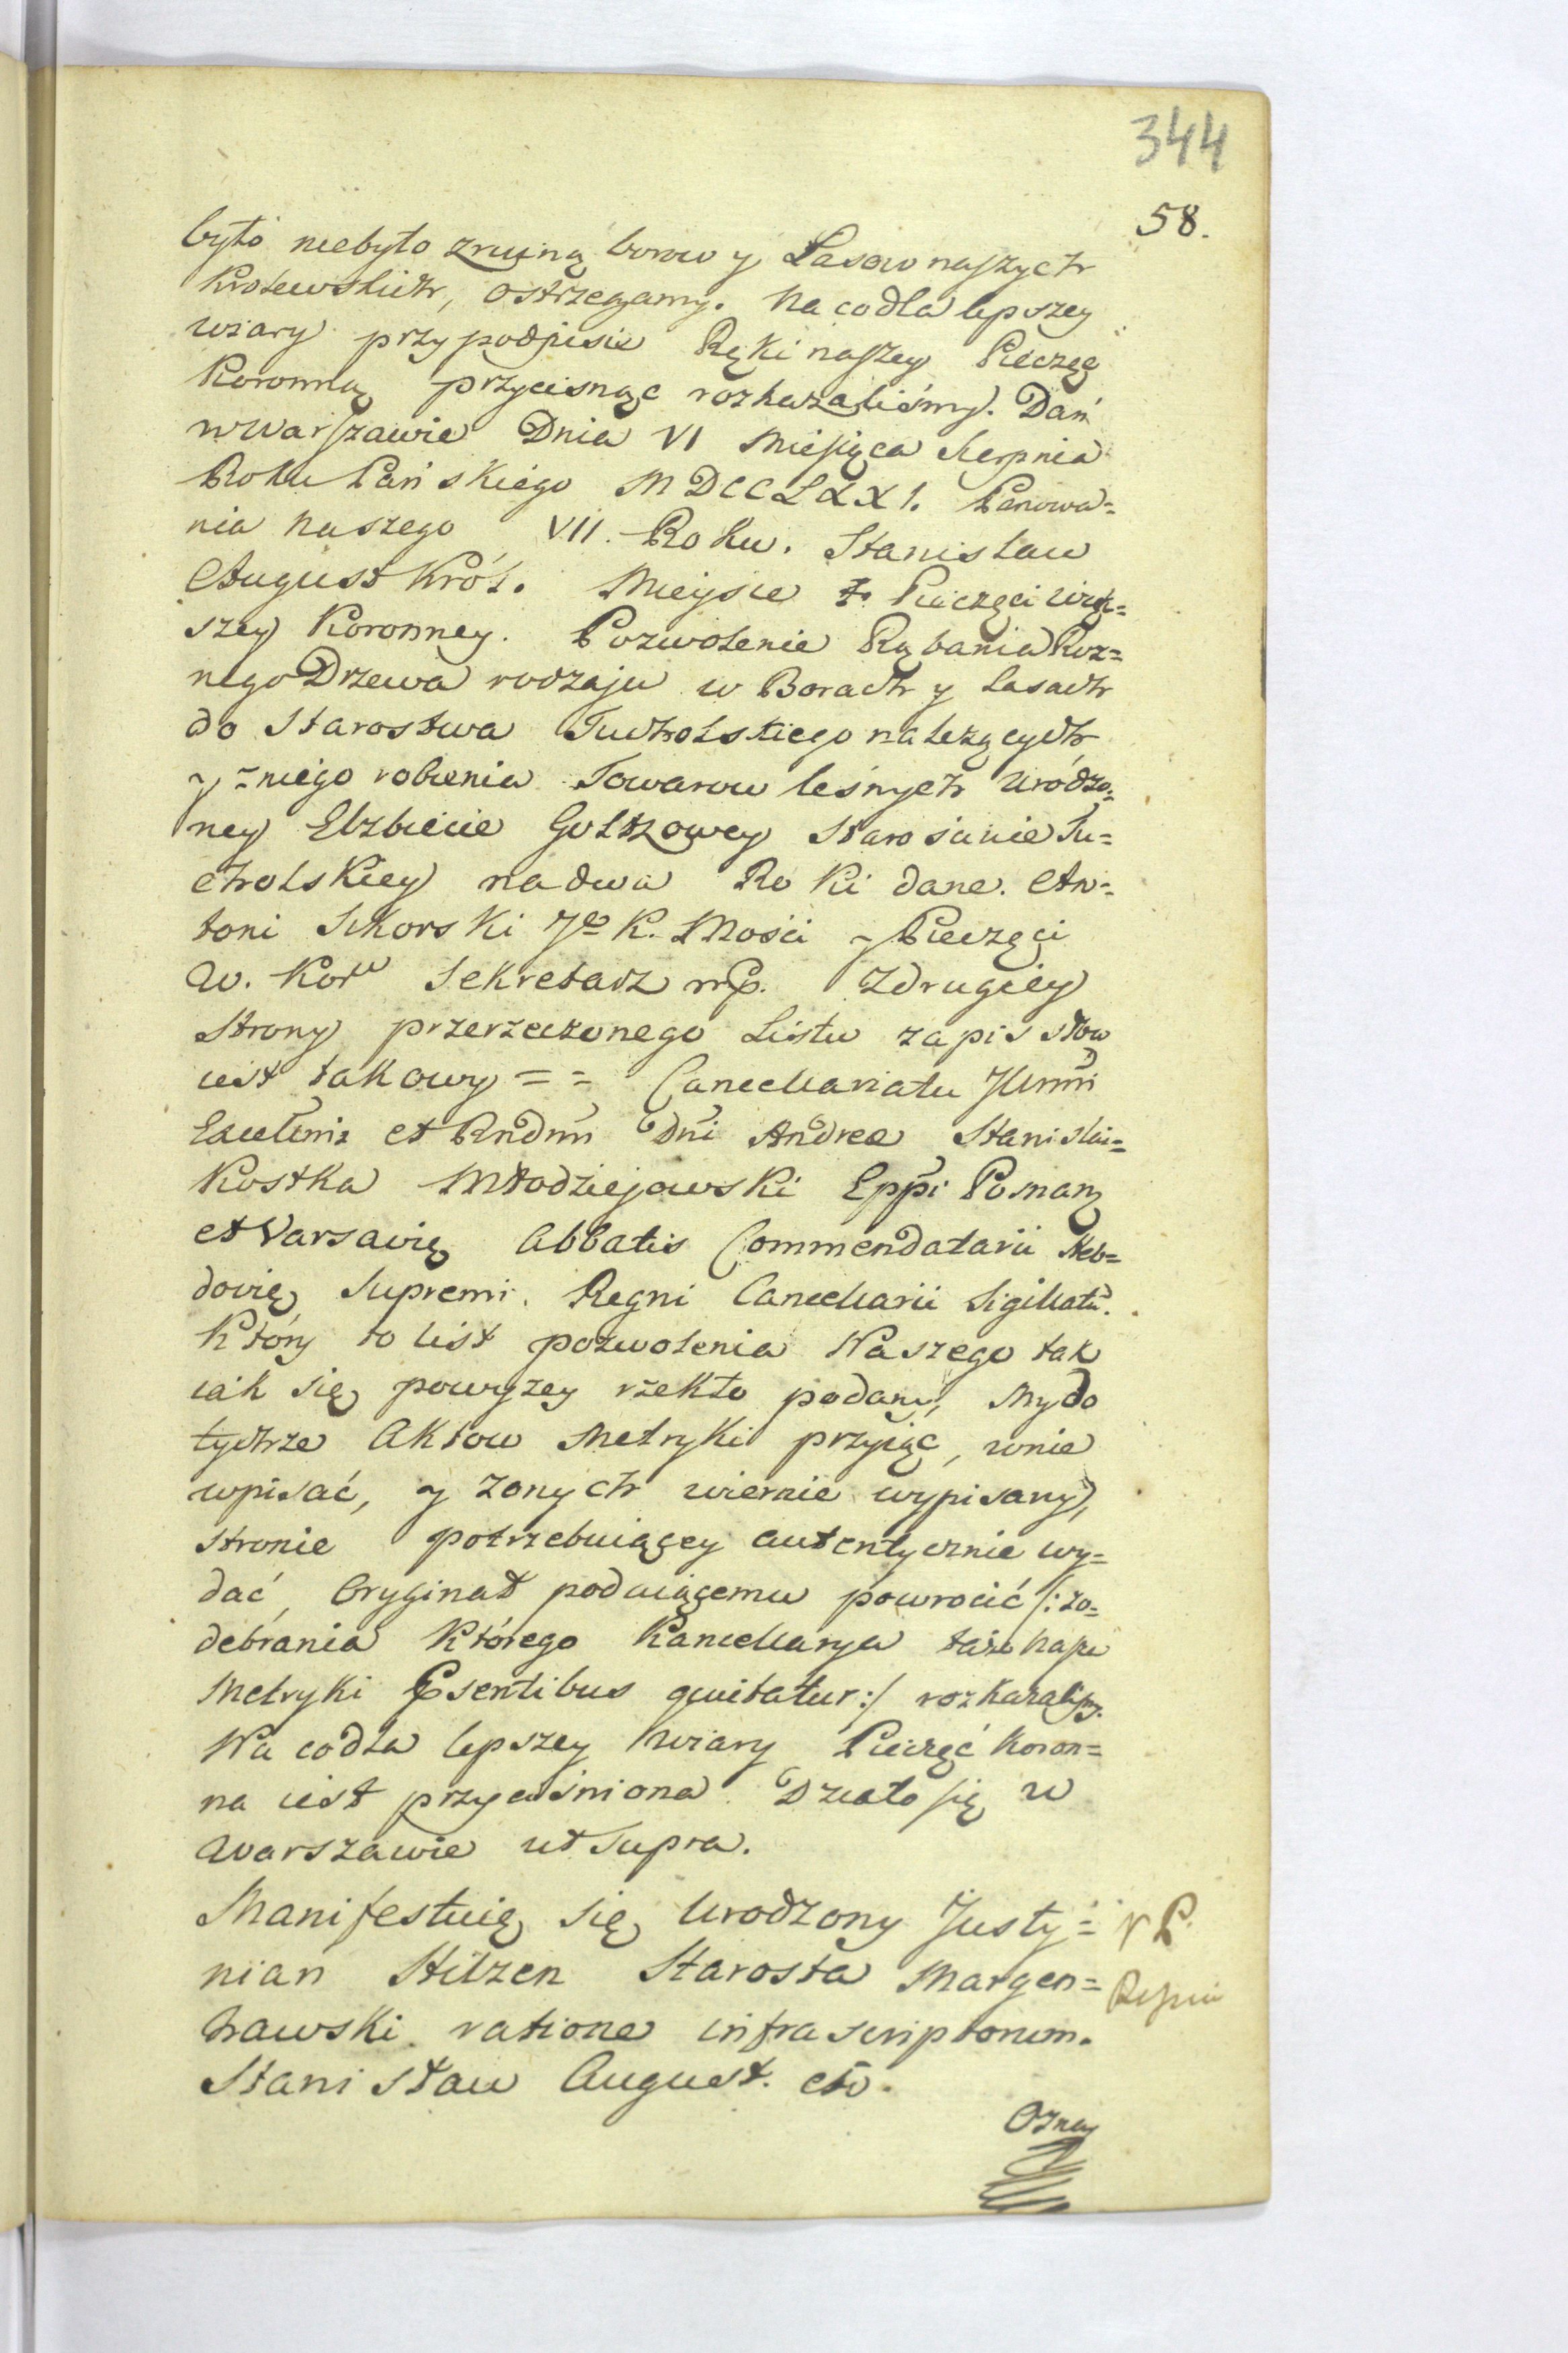 344
58.
było niebyło zruyną borow y Lasow naszych
Krolewskich, ostrzegamy. Na co dla lepszey
wiary przy podpisie Ręki naszey Pieczęć
Koronną przycisnąć rozkazaliśmy. Dan
w Warszawie Dnia VI Miesiąca Sierpnia
Roku Pańskiego MDCCLXXI. Panowa=
nia Naszego VII. Roku. Stanisław
August Król. Mieysce Pieczęci Więk=
szey Koronney. Pozwolenie Rąbania Roz=
nego Drzewa rodzaju w Borach y Lasach
do Starostwa Tucholskiego należących
y z niego robienia Towarow leśnych Urodzo=
ney Elzbiecie Goltzowey Starościnie Tu=
cholskiey na dwa Roki dane. An=
toni Sikorski J. K. Mości y Pieczęci
W. Kor. Sekretarz mp. Z drugiey
Strony przerzeczonego Listu zapis słow
iest takowy = = Cancellariatu Illmi
Excellmi et Rndmi Dni Andreæ Stanislai=
Kostka Młodziejowski Eppi Posnanę
et Varsavię Abbatis Commendatarii Heb=
dovię Supremi Regni Cancellarii Sigillatū.
Który to list pozwolenia Naszego tak
iak się powyzey rzekło podany, My do
tychże Aktow Metryki przyiąć, w nie
wpisać, y z onych wiernie wypisany,
stronie potrzebuiącey autentycznie wy=
dać, Oryginał podaiącemu powrocić /: z o=
debrania którego Kancellarya taż Nasza
Metryki Psentibus quitatur :/ rozkazaliśmy.
Na co dla lepszey wiary Pieczęć Koron=
na iest przyciśniona. Działo się w
Warszawie ut Supra.
Manifestuię się Urodzony Justy=
nian Hilzen Starosta Margen=
hawski ratione infra scriptorum.
Stanisław August. etc.
Oznay